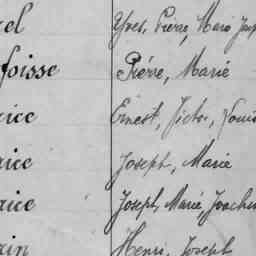 el Yves, Pierre, Marie Jos
foisse Pierre, Marie
rice Ernest, Victor, Louis
rice Joseph, Marie
rice Joseph, Marie, Joachim
rin Henri, Joseph